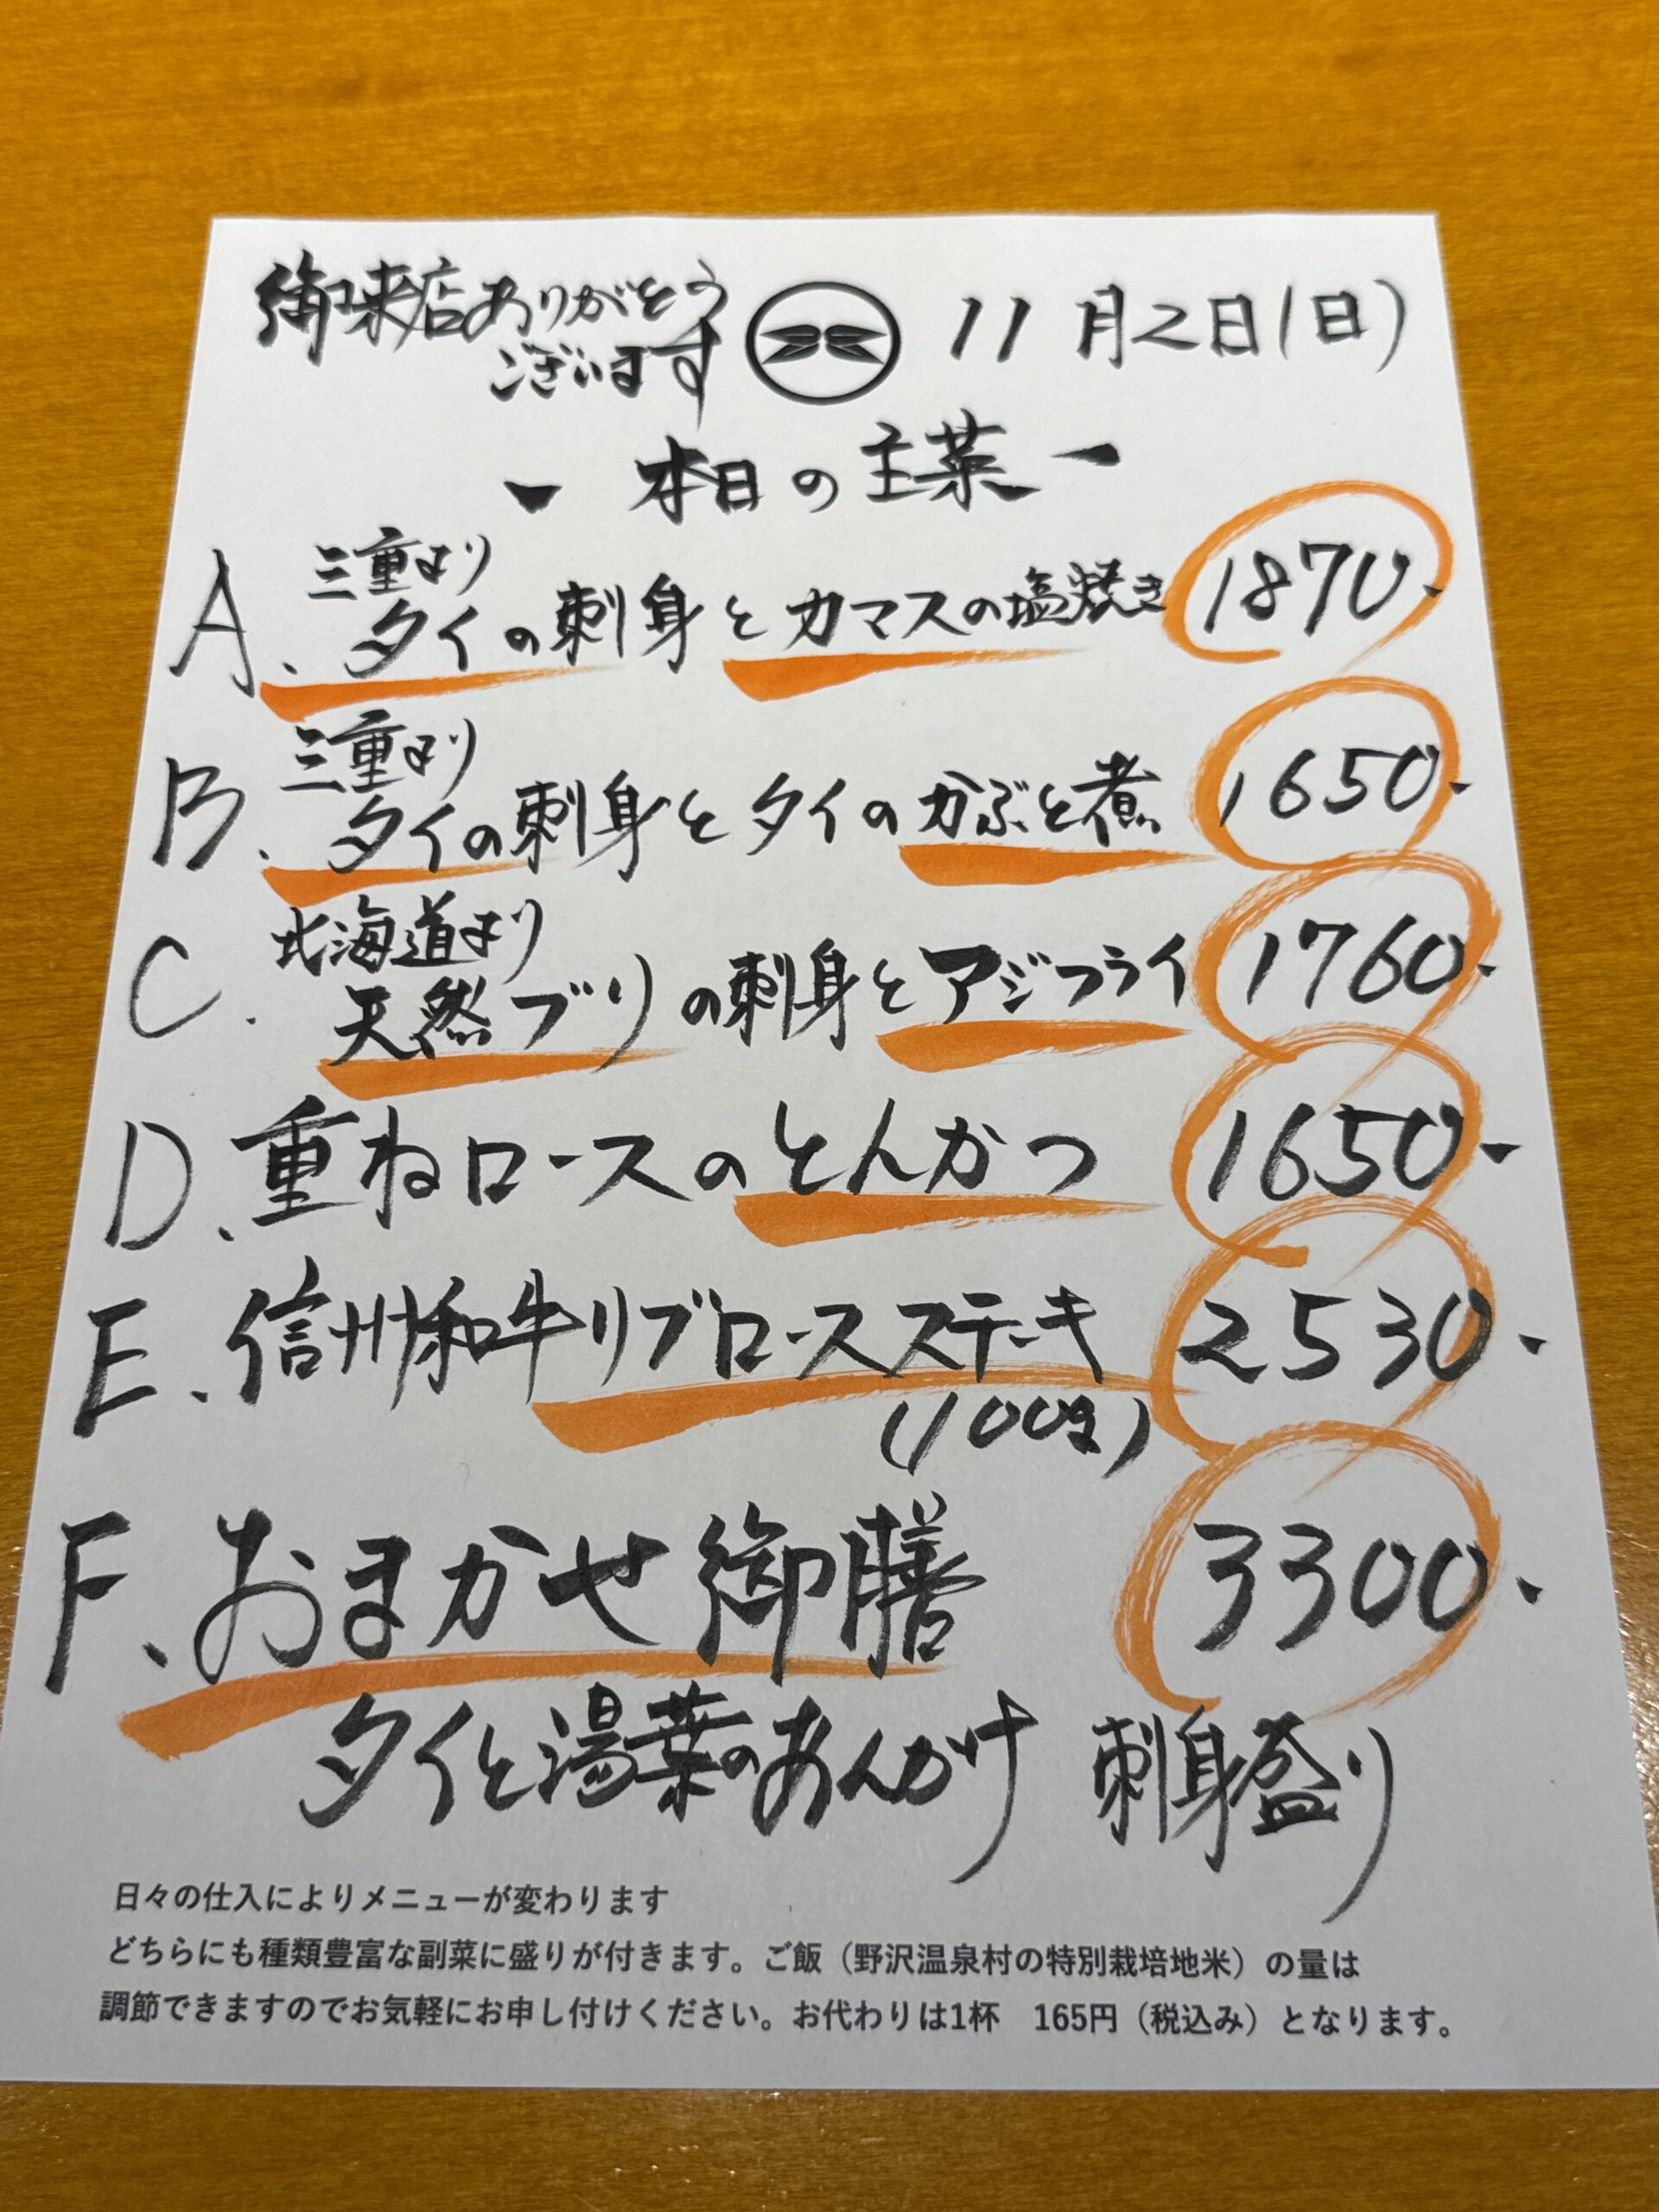 御来店ありがとう
ございます
11月2日(日)
- 本日の主菜 -
三重より
A. タイの刺身とカマスの塩焼き 1870.
三重より
B. タイの刺身とタイのかぶと煮 1650.
北海道より
C. 天然ブリの刺身とアジフライ 1760.
D. 重ねロースのとんかつ 1650.
E. 信州和牛リブロースステーキ 2530.
(100g)
F. おまかせ御膳 3300.
タイと湯葉のあんかけ 刺身盛り
日々の仕入によりメニューが変わります
どちらにも種類豊富な副菜に盛りが付きます。ご飯（野沢温泉村の特別栽培地米）の量は
調節できますのでお気軽にお申し付けください。お代わりは1杯 165円（税込み）となります。